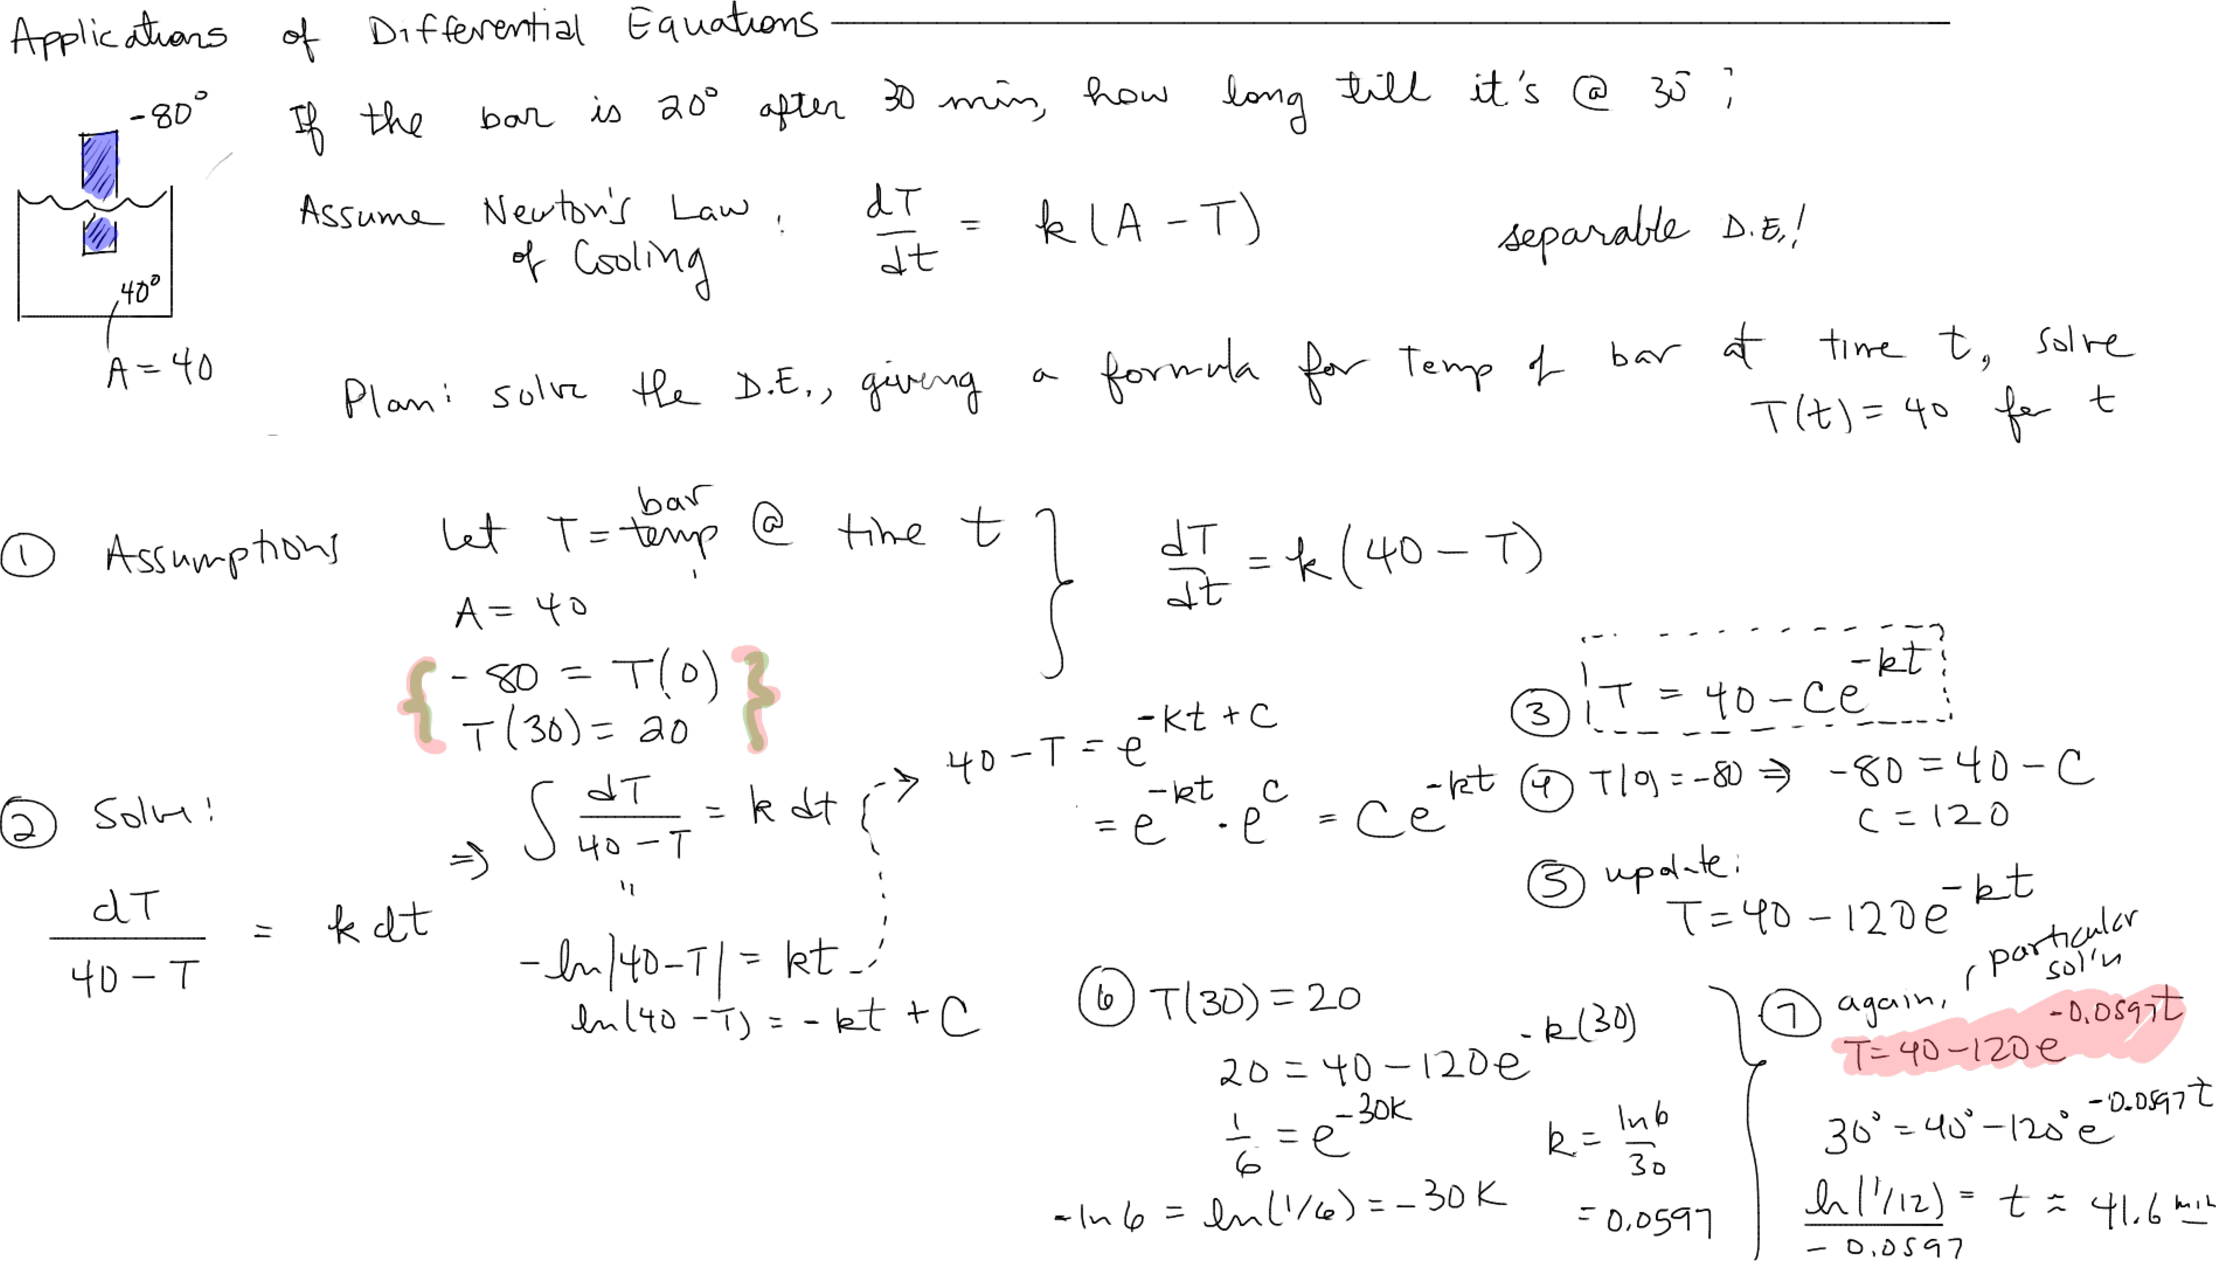 Applications of Differential Equations
-80°
If the bar is 20° after 30 min, how long till it's @ 30 ?
Assume Newton's Law of Cooling : dT/dt = k(A - T)
separable D.E.!
40°
A = 40
Plan: solve the D.E., giving a formula for Temp of bar at time t, solve
T(t) = 40 for t
① Assumptions Let T = bar temp @ time t
A = 40
-80 = T(0)
T(30) = 20
dT/dt = k(40 - T)
② Solve:
dT/(40 - T) = k dt
⇒ ∫ dT/(40 - T) = k dt
"
-ln|40-T| = kt
ln(40 - T) = -kt + C
→ 40 - T = e^(-kt + C)
= e^(-kt) · e^C = Ce^(-kt)
③ T = 40 - Ce^(-kt)
④ T(0) = -80 ⇒ -80 = 40 - C
C = 120
⑤ update:
T = 40 - 120e^(-kt)
⑥ T(30) = 20
20 = 40 - 120e^(-k(30))
1/6 = e^(-30k)
-ln 6 = ln(1/6) = -30k
k = ln 6/30
= 0.0597
⑦ again, particular sol'n
T = 40 - 120e^(-0.0597t)
30° = 40° - 120°e^(-0.0597t)
ln(1/12)/-0.0597 = t ≈ 41.6 min